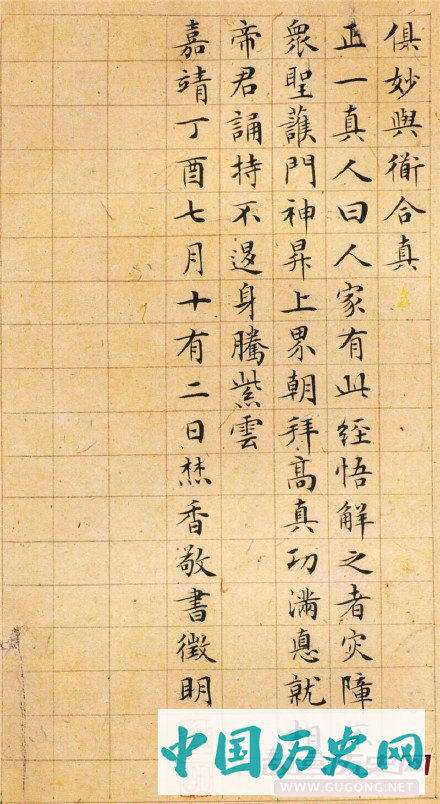 俱妙與衜合真
正一真人曰人家有此經悟解之者灾障
衆聖護門神昇上界朝拜高真功滿悳就
帝君誦持不退身騰紫雲
嘉靖丁酉七月十有二日焚香敬書徵明
中国历史网
WWW.GUGONG.NET